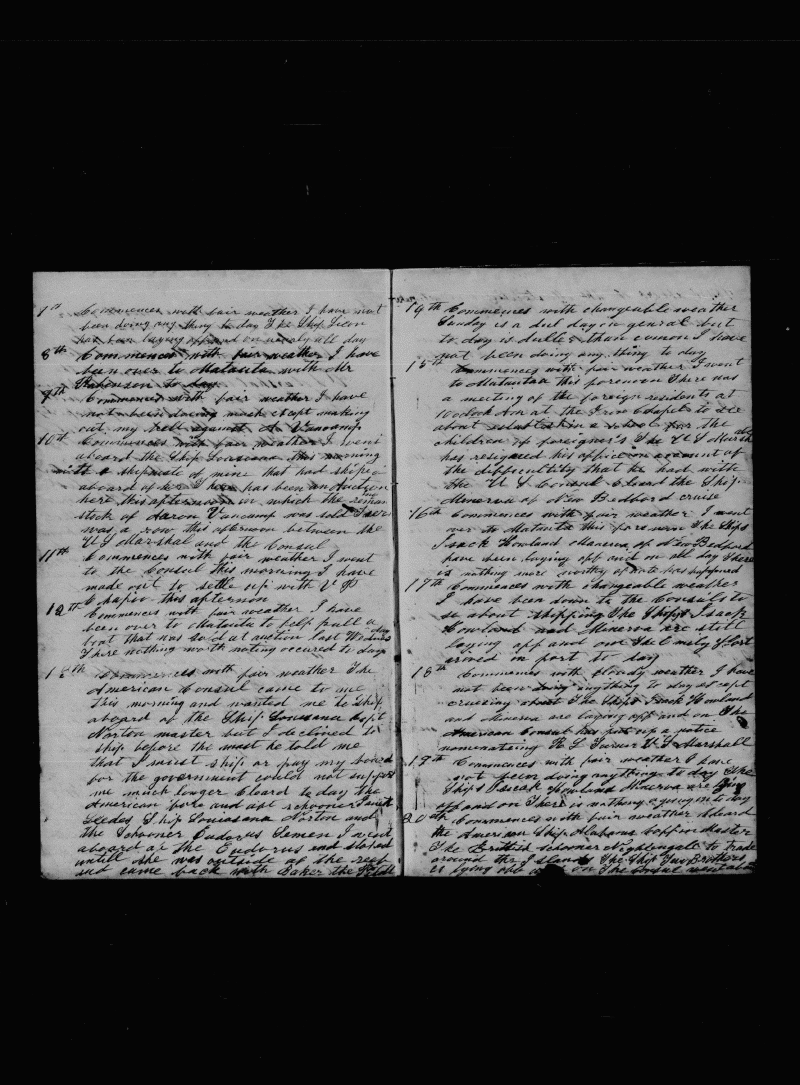 7th Commences with fair weather I have not
been doing any thing to day The Ship Leon
has been laying off and on nearly all day
8th Commences with fair weather I have
been over to Matauta with Mr
to day
9th Commences with fair weather I have
not been doing much exept making
out my bill against A Vancamp
10th Commences with fair weather I went
aboard the Ship Louisiana this morning
with a shipmate of mine that had shiped
aboard of her There has been an Auction
here this afternoon in which the remain
stock of Aaron Vancamp was sold There
was a row this afternoon between the
U S Marshal and the Consul
11th Commences with fair weather I went
to the Consul this morning I have
made out to settle up with V P
Chapin this afternoon
12th Commences with fair weather I have
been over to Matauta to help haul a
boat that was sold at auction last Wednesday
There nothing worth noting occured to day
13th Commences with fair weather The
American Consul came to me
this morning and wanted me to ship
aboard of the Ship Louisiana Capt
Norton master but I declined to
ship before the mast he told me
that I must ship or pay my board
for the government could not support
me much longer Cleard to day the
American schooner
Ship Louisiana Norton and
the Schooner Eudorus I went
aboard of the Eudorus and staped
untill she was outside of the reef
and came back with Baker the Pilot
14th Commences with changeable weather
Sunday is a dul day in genral but
to day is duller than comon I have
not been doing any thing to day
15th Commences with fair weather I went
to Matautau this forenoon There was
a meeting of the foreign residents at
10 oclock Am at the Iron Chapel to see
about establishin a school for the
children of foreigner's The U S Marshall
has resigned his office on account of
the difficultity that he had with
the U S Consul Cleard the Ship
Minerva of New Bedford cruise
16th Commences with fair weather I went
over to Matauta this fore noon The Ships
Isack Howland Minerva of New Bedford
have been laying off and on all day There
is nothing more worthy of note has happened
17th Commences with changeable weather
I have been down to the Consuls to
se about shipping The Ships Isack
Howland and Minerva are still
laying off and on The Emily Hort
arived in port to day
18th Commences with cloudy weather I have
not been doing anything to day exept
cruising about The Ships Isack Howland
and Minerva are laying off and on The
American Consul has put up a notice
nominateing H S U S Marshall
19th Commences with fair weather I have
not been doing anything to day The
Ships Isack Howland Minerva are lying
off and on There is nothing agoing on to day
20th Commences with fair weather Cleard
the American Ship Alabama Coffin Master
The Brittish Schooner Nightengale to trade
around the Islands The Ship Two Brothers
is lying off and on The Consul went